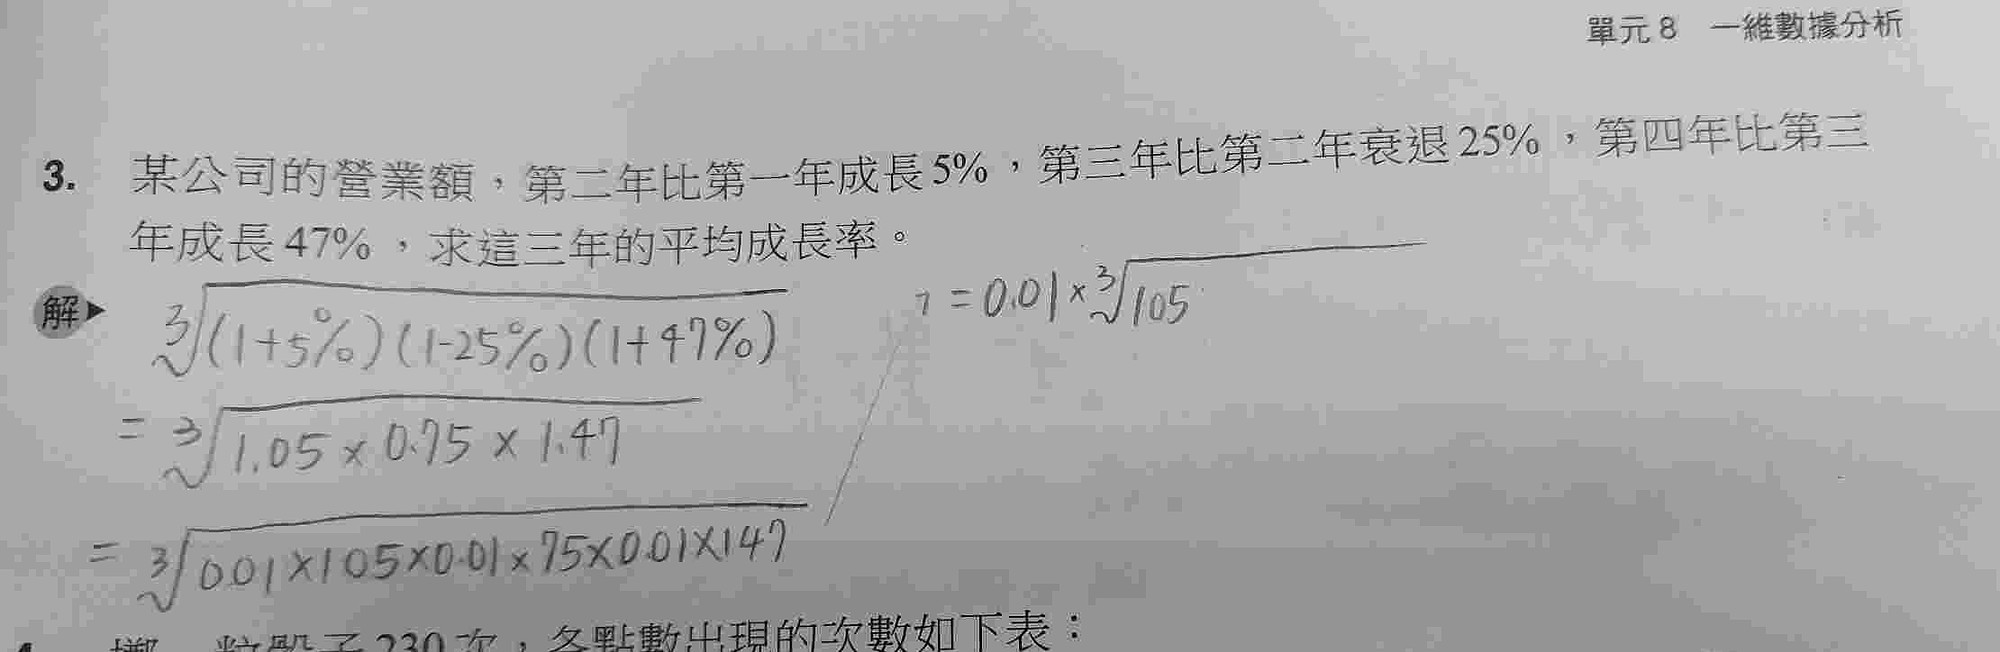 單元 8 一維數據分析
3. 某公司的營業額，第二年比第一年成長 5%，第三年比第二年衰退 25%，第四年比第三
年成長 47%，求這三年的平均成長率。
解▶ ∛(1+5%)(1-25%)(1+47%)
= ∛1.05×0.75×1.47
= ∛0.01×105×0.01×75×0.01×147
= 0.01×∛105
粒骰子 230 次，各點數出現的次數如下表：